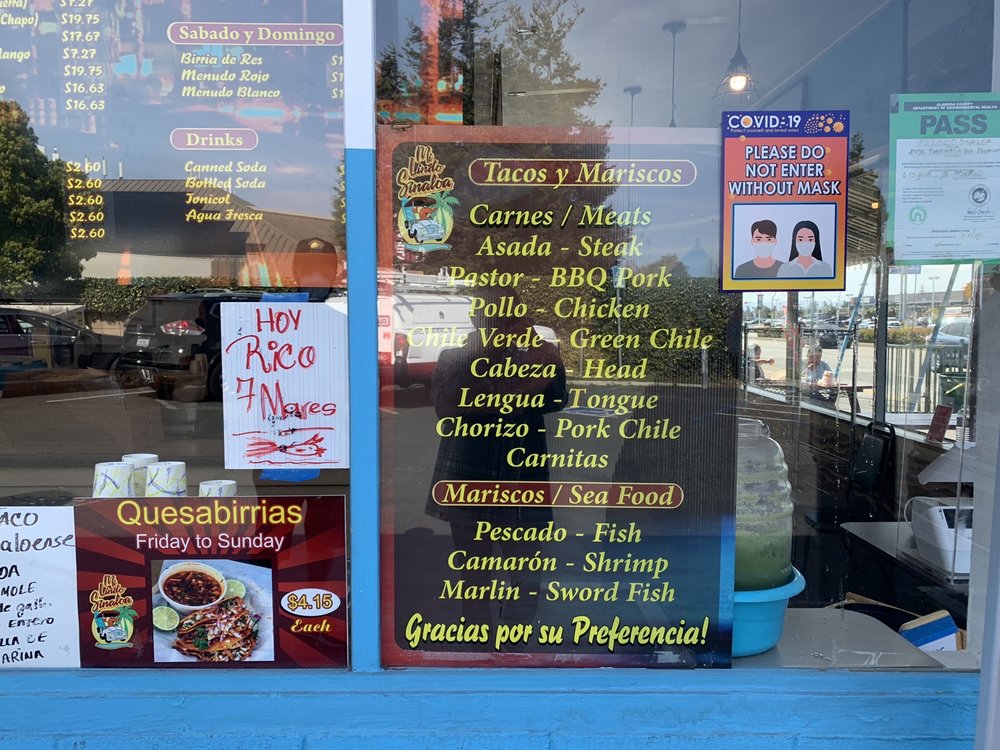 $7.27
Chapo) $19.75
$17.67
$7.27
$19.75
$16.63
$16.63
Sabado y Domingo
Birria de Res
Menudo Rojo
Menudo Blanco
Drinks
$2.60 Canned Soda
$2.60 Bottled Soda
$2.60 Tonicol
$2.60 Agua Fresca
$2.60
HOY
RICO
7 Mares
Quesabirrias
Friday to Sunday
Mi Lindo Sinaloa
$4.15
Each
Mi Lindo Sinaloa
Tacos y Mariscos
Carnes / Meats
Asada - Steak
Pastor - BBQ Pork
Pollo - Chicken
Chile Verde - Green Chile
Cabeza - Head
Lengua - Tongue
Chorizo - Pork Chile
Carnitas
Mariscos / Sea Food
Pescado - Fish
Camarón - Shrimp
Marlin - Sword Fish
Gracias por su Preferencia!
COVID-19
Protect yourself and loved ones
PLEASE DO
NOT ENTER
WITHOUT MASK
ALAMEDA COUNTY
DEPARTMENT OF ENVIRONMENTAL HEALTH
PASS